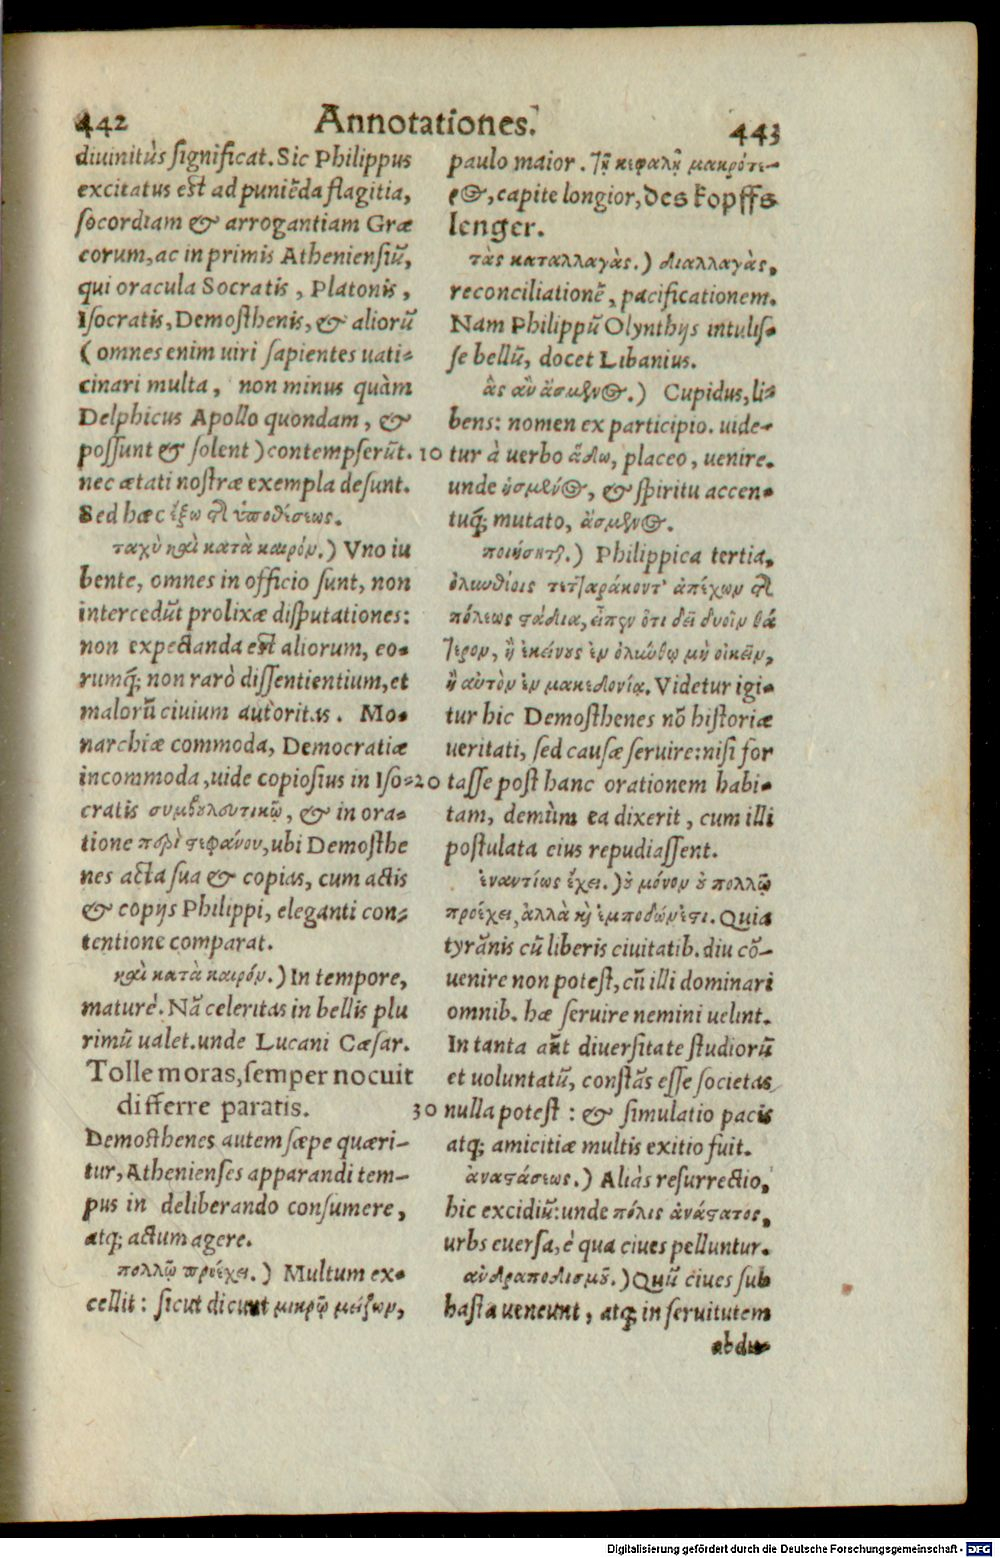 442 Annotationes. 443
diuinitùs significat. Sic Philippus
excitatus est ad puniẽda flagitia,
socordiam & arrogantiam Græ
corum, ac in primis Atheniensiũ,
qui oracula Socratis, Platonis,
Isocratis, Demosthenis, & aliorũ
(omnes enim uiri sapientes uati-
cinari multa, non minus quàm
Delphicus Apollo quondam, &
possunt & solent) contempserũt.
nec ætati nostræ exempla desunt.
Sed hæc ἔξω τῆς ὑποθέσεως.
ταχὺ καὶ κατὰ καιρόν.) Vno iu
bente, omnes in officio sunt, non
intercedũt prolixæ disputationes:
non expectanda est aliorum, eo-
rumq́; non rarò dissentientium, et
malorũ ciuium autoritas. Mo-
narchiæ commoda, Democratiæ
incommoda, uide copiosius in Iso-
cratis συμβουλευτικῷ, & in ora-
tione περὶ στεφάνου, ubi Demosthe
nes acta sua & copias, cum actis
& copijs Philippi, eleganti con-
tentione comparat.
καὶ κατὰ καιρόν.) In tempore,
maturè. Nã celeritas in bellis plu
rimũ ualet. unde Lucani Cæsar.
Tolle moras, semper nocuit
differre paratis.
Demosthenes autem sæpe quæri-
tur, Athenienses apparandi tem-
pus in deliberando consumere,
atq; actum agere.
πολλῷ προέχει.) Multum ex-
cellit: sicut dicunt μικρῷ μείζων,
paulo maior. τῇ κεφαλῇ μακρότε-
ρος, capite longior, des kopffs
lenger.
τὰς καταλλαγὰς.) διαλλαγὰς,
reconciliationẽ, pacificationem.
Nam Philippũ Olynthijs intulis-
se bellũ, docet Libanius.
ἃς ἂν ἄσμενος.) Cupidus, li-
bens: nomen ex participio. uide-
10 tur à uerbo ἅδω, placeo, uenire.
unde ἡσμένος, & spiritu accen-
tuq́; mutato, ἄσμενος.
ποιήσητ.) Philippica tertia,
ὀλυνθίοις τετταράκοντ' ἀπέχων τῆς
πόλεως στάδια, εἶπεν ὅτι δεῖ δυοῖν θά
τερον, ἢ ἐκείνους ἐν ὀλύνθῳ μὴ οἰκεῖν,
ἢ αὐτὸν ἐν μακεδονίᾳ. Videtur igi-
tur hic Demosthenes nõ historiæ
ueritati, sed causæ seruire: nisi for
20 tasse post hanc orationem habi-
tam, demùm ea dixerit, cum illi
postulata eius repudiassent.
ἐναντίως ἔχει.) οὐ μόνον οὐ πολλῷ
προέχει, ἀλλὰ καὶ ἐμποδών ἐστι. Quia
tyrãnis cũ liberis ciuitatib. diu cõ-
uenire non potest, cũ illi dominari
omnib. hæ seruire nemini uelint.
In tanta aũt diuersitate studiorũ
et uoluntatũ, constãs esse societas
30 nulla potest: & simulatio pacis
atq; amicitiæ multis exitio fuit.
ἀναστάσεως.) Aliàs resurrectio,
hic excidiũ: unde πόλις ἀνάστατος,
urbs euersa, è qua ciues pelluntur.
ἀνδραποδισμοῦ.) Quũ ciues sub
hasta ueneunt, atq; in seruitutem
abdu-
Digitalisierung gefördert durch die Deutsche Forschungsgemeinschaft - DFG